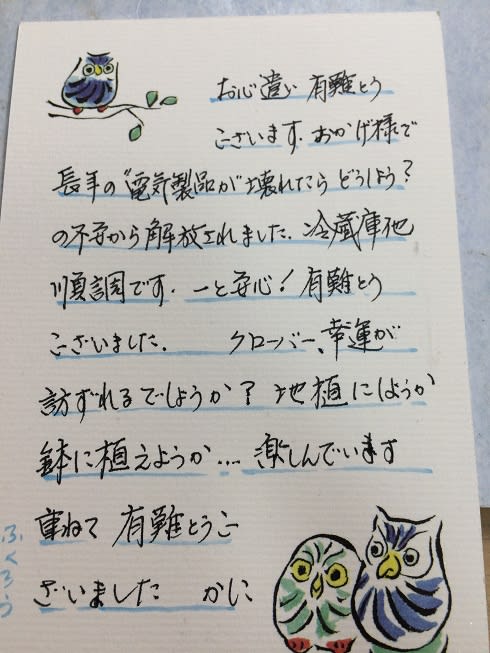 お心遣い 有難とう
ございます. おかげ様で
長年の"電気製品が壊れたら どうしよう?
の不安から解放されました. 冷蔵庫他
順調です. 一と安心! 有難とう
ございました. クローバー、幸運が
訪ずれるでしょうか? 地植にしようか
鉢に植えようか… 楽しんでいます
重ねて 有難とうご
ざいました かに
ふくろう